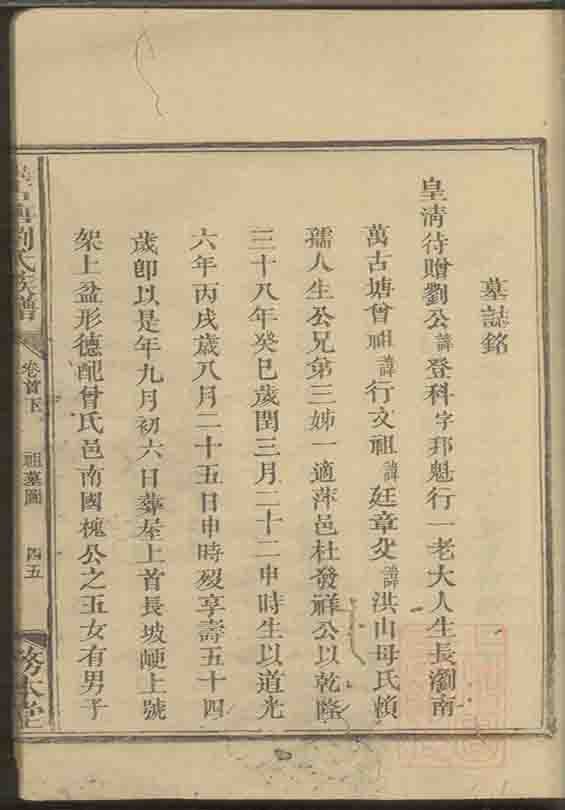 墓誌銘
皇清待贈劉公諱登科字邦魁行一老大人生長瀏南
萬古塘曾祖諱行文祖諱廷章父諱洪山母氏賴
孺人生公兄弟三姊一適萍邑杜發祥公以乾隆
三十八年癸巳歲閏三月二十二申時生以道光
六年丙戌歲八月二十五日申時歿享壽五十四
歲卽以是年九月初六日葬屋上首長坡㟁上號
架上盆形德配曾氏邑南國槐公之五女有男子
劉氏族譜
卷首下
祖墓圖
四五
務本堂